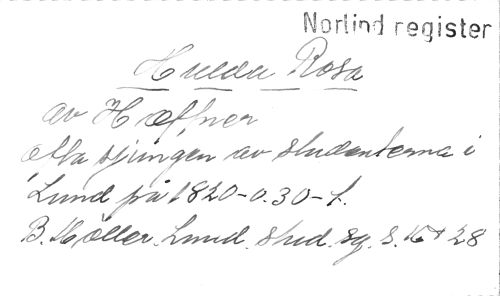 Norlind register
Hulda Rosa
av Hæffner
ofta sjungen av studenterna i
Lund på 1820-o.30-t.
B. Möller. Lund. stud. sg. s. 28